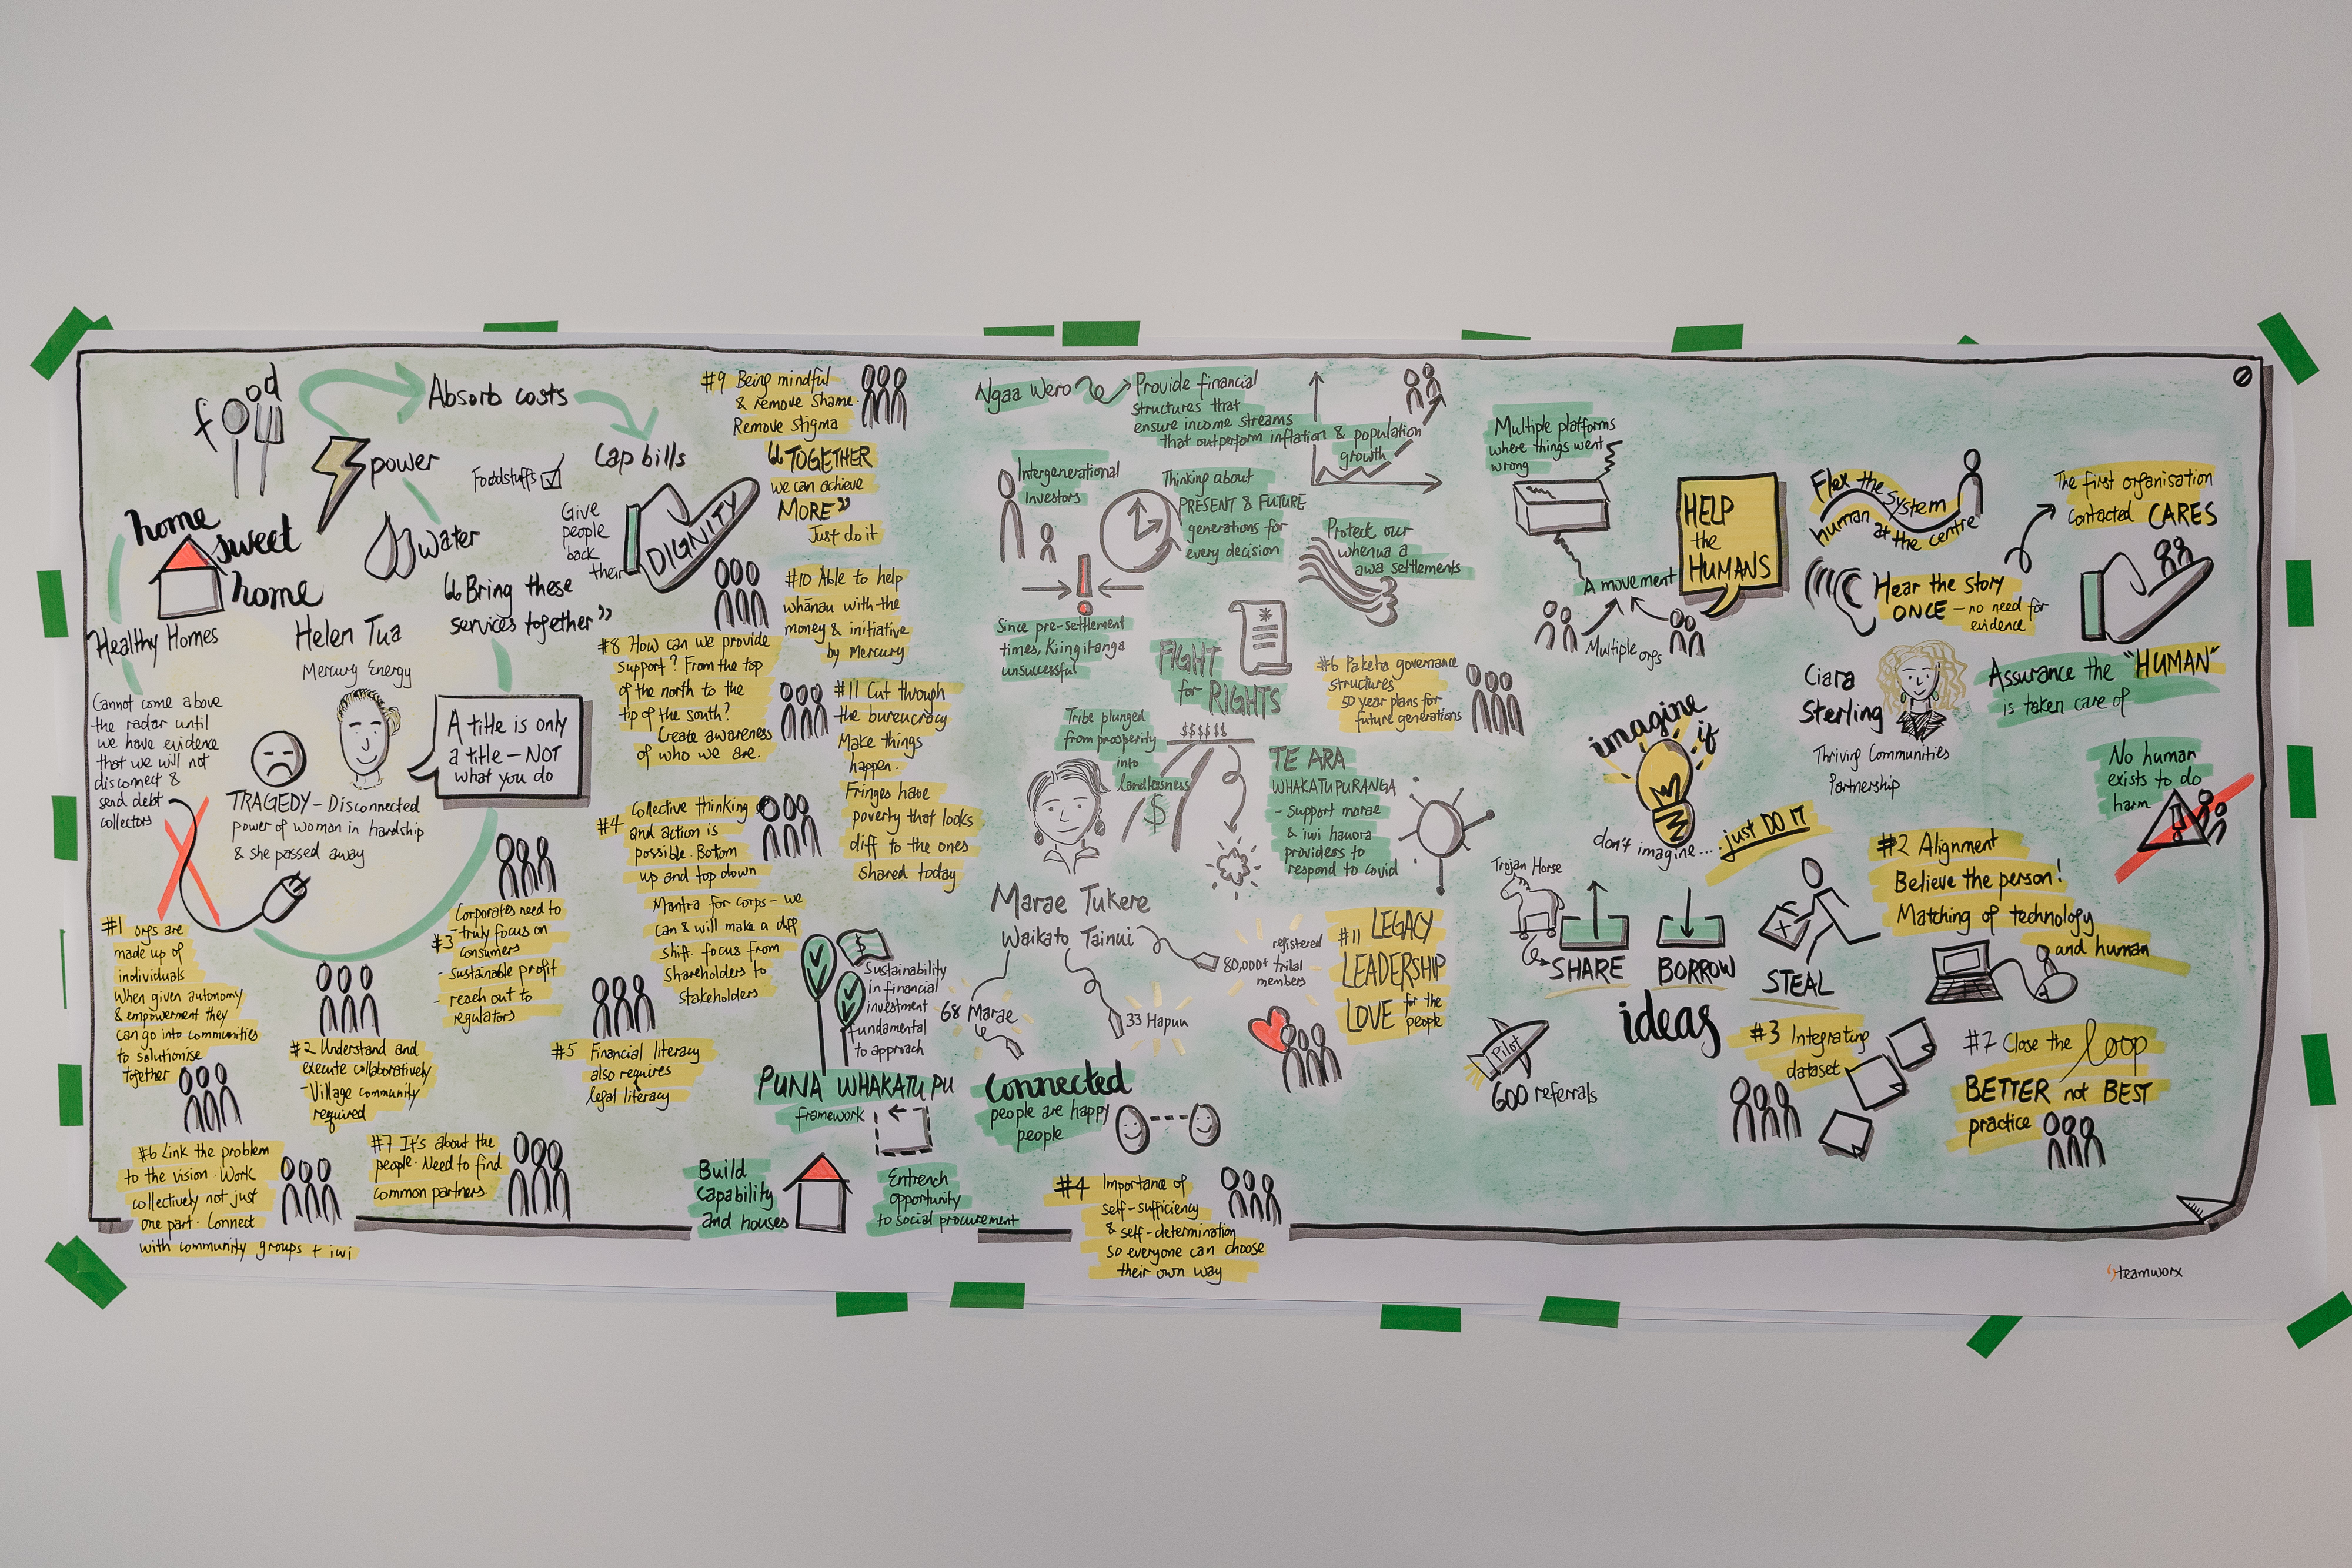 food
Absorb costs
power
Cap bills
Foodstuffs
water
home
sweet
home
Healthy Homes
Give
people
back
their
DIGNITY
"Bring these
services together"
Helen Tua
Mercury Energy
A title is only
a title – NOT
what you do
Cannot come above
the radar until
we have evidence
that we will not
disconnect &
send debt
collectors
TRAGEDY – Disconnected
power of woman in hardship
& she passed away
#1 orgs are
made up of
individuals
When given autonomy
& empowerment they
can go into communities
to solutionise
together
#2 Understand and
execute collaboratively
- Village community
required
#3 Corporates need to
- truly focus on
consumers
- sustainable profit
- reach out to
regulators
#4 Collective thinking
and action is
possible. Bottom
up and top down
Mantra for corps – we
can & will make a diff
shift focus from
shareholders to
stakeholders
#5 Financial literacy
also requires
legal literacy
#6 Link the problem
to the vision. Work
collectively not just
one part. Connect
with community groups + iwi
#7 It's about the
people. Need to find
common partners.
#8 How can we provide
support? From the top
of the north to the
tip of the south?
Create awareness
of who we are.
#9 Being mindful
& remove shame.
Remove stigma
"TOGETHER
we can achieve
MORE"
Just do it
#10 Able to help
whānau with the
money & initiative
by Mercury
#11 Cut through
the bureucracy
Make things
happen.
Fringes have
poverty that looks
diff to the ones
shared today
Ngaa Wero
Provide financial
structures that
ensure income streams
that outperform inflation & population
growth
Intergenerational
Investors
Thinking about
PRESENT & FUTURE
generations for
every decision
Protect our
whenua a
awa settlements
Since pre-settlement
times, Kiingitanga
unsuccessful
FIGHT
for RIGHTS
#6 Pakeha governance
structures
50 year plans for
future generations
Tribe plunged
from prosperity
into
landlessness
$$$$$$
$
TE ARA
WHAKATUPURANGA
- Support marae
& iwi hauora
providers to
respond to covid
Marae Tukere
Waikato Tainui
68 Marae
33 Hapuu
registered
80,000+ tribal
members
#11 LEGACY
LEADERSHIP
LOVE for the
people
$
Sustainability
in financial
investment
fundamental
to approach
PUNA WHAKATUPU
framework
Connected
people are happy
people
Build
capability
and houses
Entrench
opportunity
to social procurement
#4 Importance of
self-sufficiency
& self-determination
so everyone can choose
their own way
Multiple platforms
where things went
wrong
A movement
Multiple orgs
HELP
the
HUMANS
Flex the system
human at the centre
The first organisation
contacted CARES
Hear the story
ONCE – no need for
evidence
Ciara
Sterling
Thriving Communities
Partnership
Assurance the "HUMAN"
is taken care of
No human
exists to do
harm
imagine
if
don't imagine.... just DO IT
Trojan Horse
SHARE
BORROW
STEAL
ideas
Pilot
600 referrals
#2 Alignment
Believe the person!
Matching of technology
and human
#3 Integrating
dataset
#7 Close the loop
BETTER not BEST
practice
teamworx